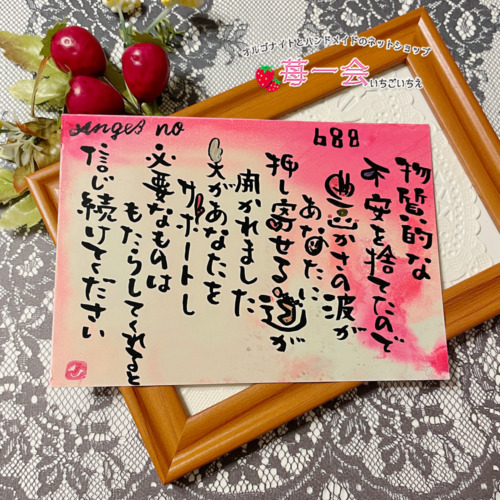 オルゴナイトとハンドメイドのネットショップ
苺一会 いちごいちえ
Angel no
688
物質的な
不安を捨てたので
豊かさの波が
あなたに
押し寄せる道が
開かれました
天があなたを
サポートし
必要なものは
もたらしてくれると
信じ続けてください